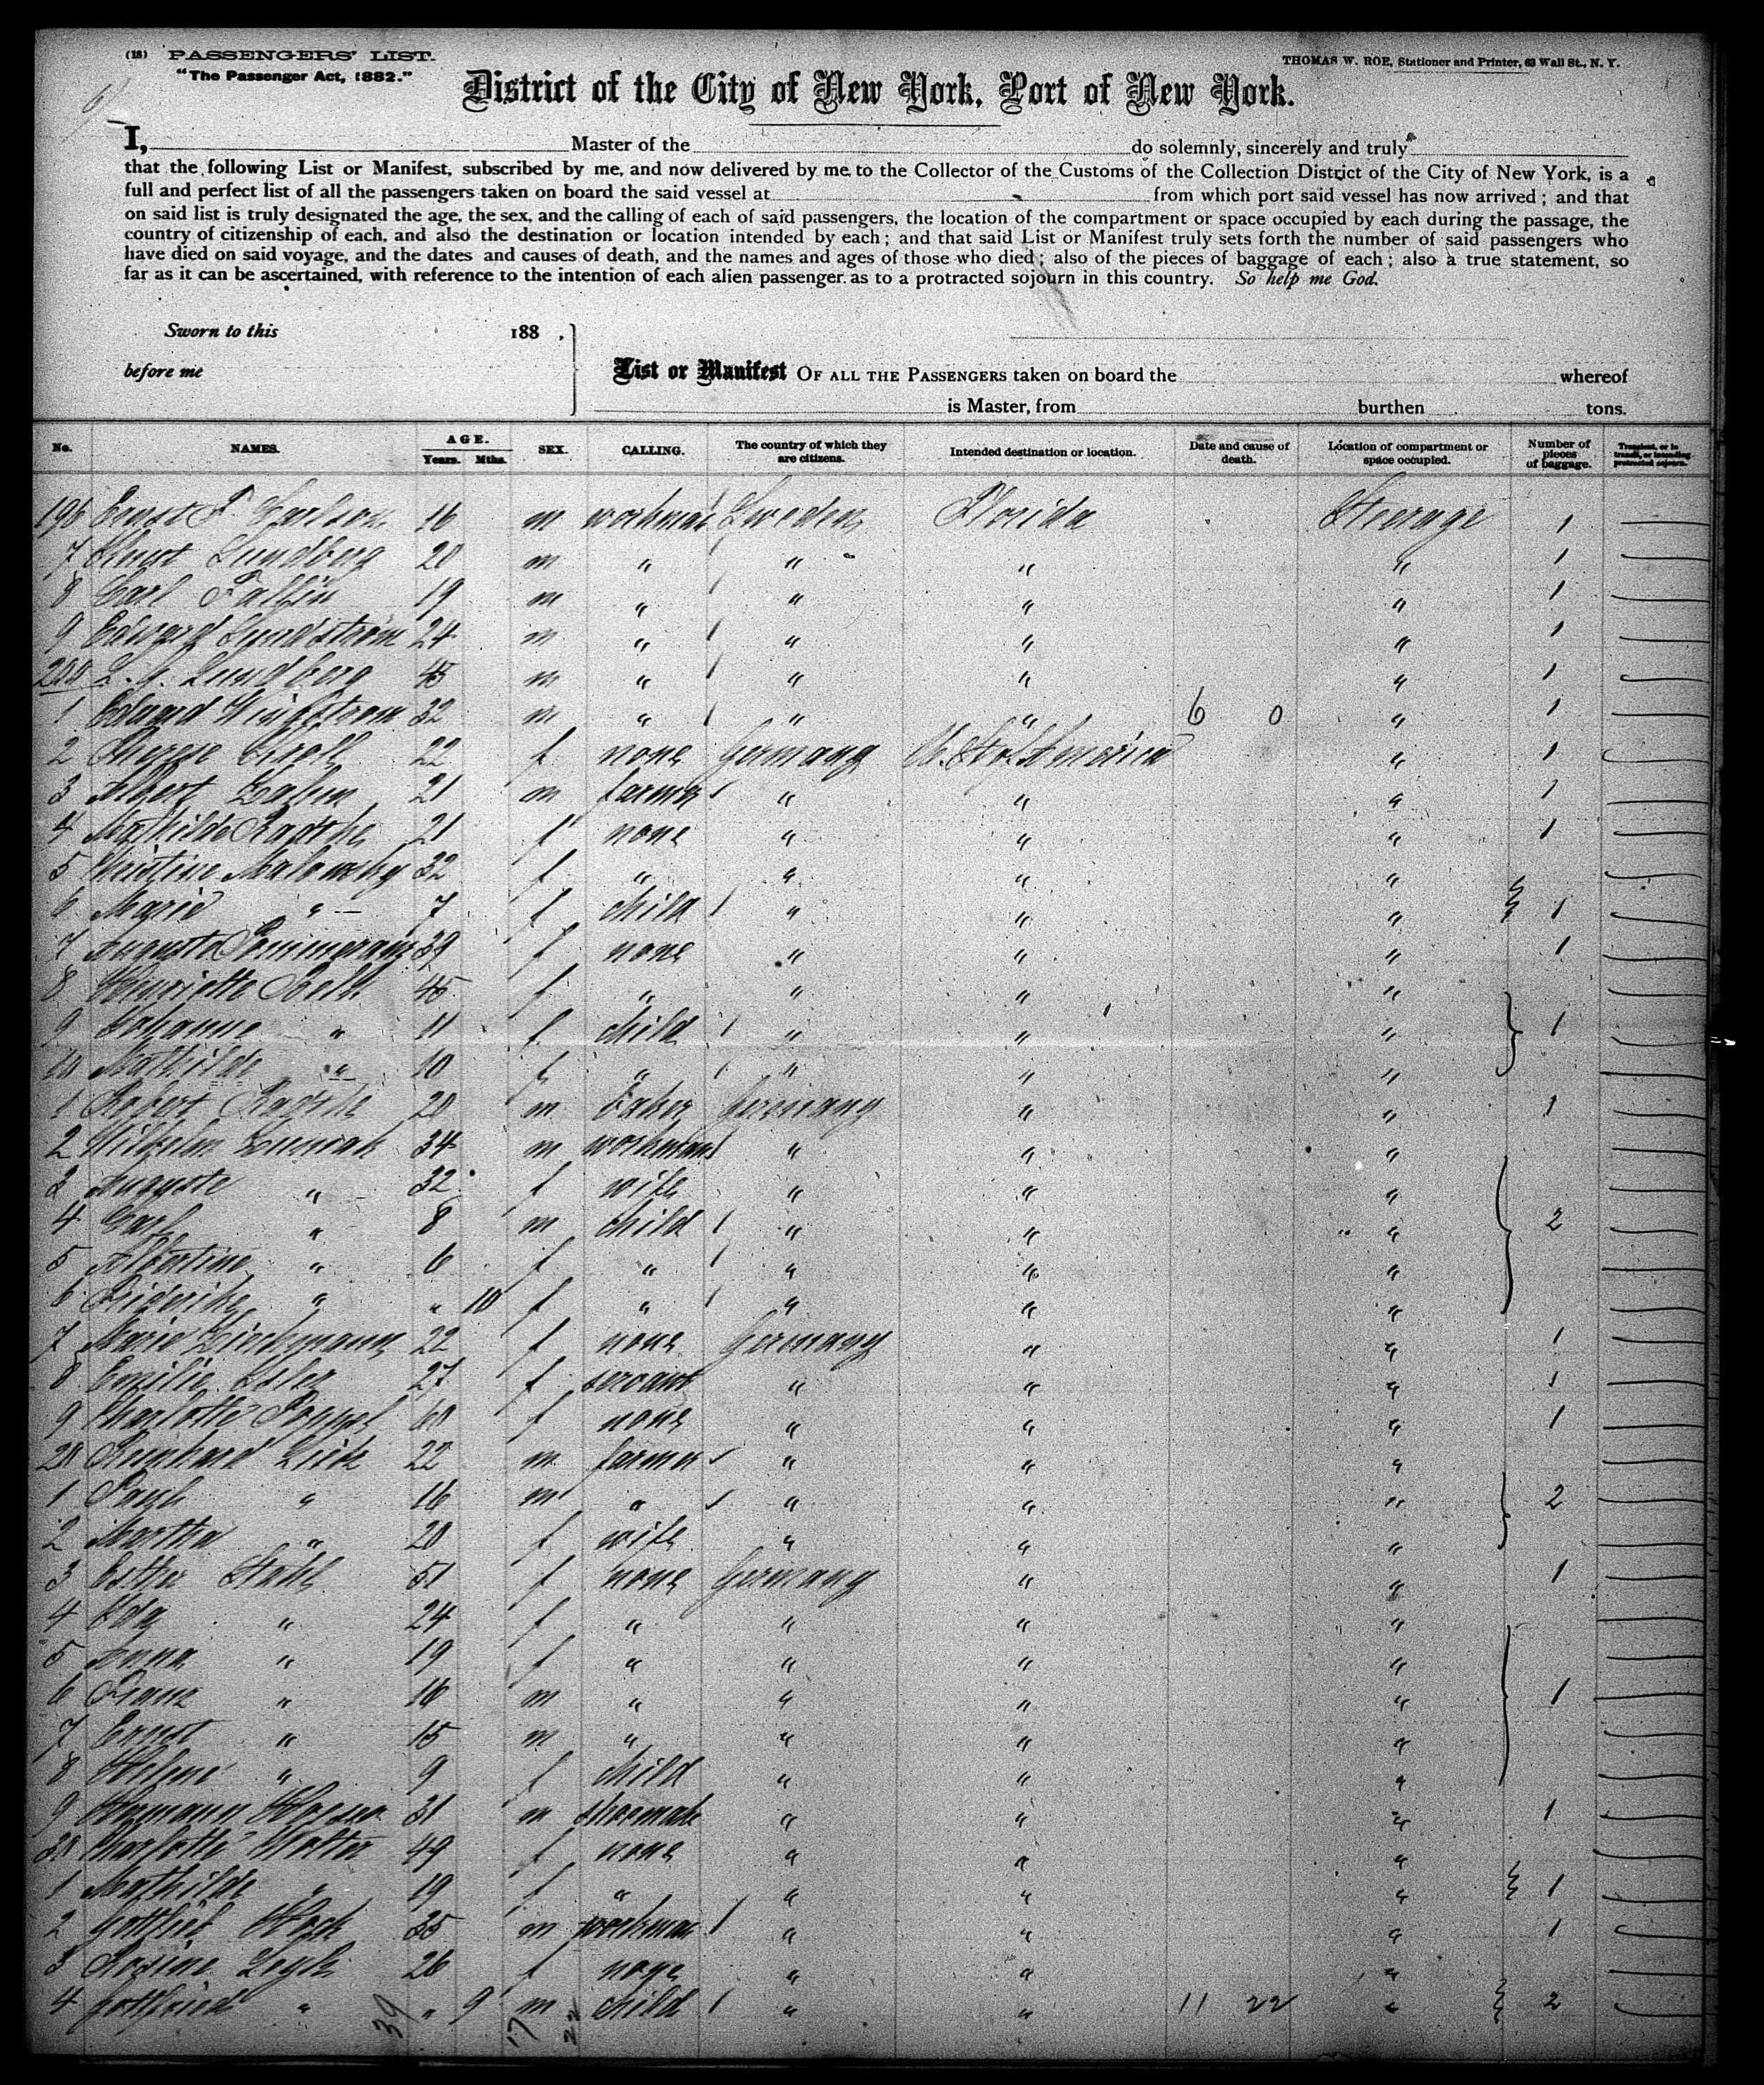 (18) PASSENGERS' LIST.
"The Passenger Act, 1882."
THOMAS W. ROE, Stationer and Printer, 63 Wall St., N. Y.
District of the City of New York, Port of New York.
I, Master of the do solemnly, sincerely and truly
that the following List or Manifest, subscribed by me, and now delivered by me to the Collector of the Customs of the Collection District of the City of New York, is a
full and perfect list of all the passengers taken on board the said vessel at from which port said vessel has now arrived; and that
on said list is truly designated the age, the sex, and the calling of each of said passengers, the location of the compartment or space occupied by each during the passage, the
country of citizenship of each, and also the destination or location intended by each; and that said List or Manifest truly sets forth the number of said passengers who
have died on said voyage, and the dates and causes of death, and the names and ages of those who died; also of the pieces of baggage of each; also a true statement, so
far as it can be ascertained, with reference to the intention of each alien passenger as to a protracted sojourn in this country. So help me God.
Sworn to this 188 .
before me
List or Manifest OF ALL THE PASSENGERS taken on board the whereof
is Master, from burthen tons.
No. NAMES. AGE. Years. Mths. SEX. CALLING. The country of which they are citizens. Intended destination or location. Date and cause of death. Location of compartment or space occupied. Number of pieces of baggage. Transient, or in transit, or intending protracted sojourn.
196 Ernst F. Carlson 16 m workman Sweden Florida Steerage 1
7 Knut Lundberg 20 m " " " " 1
8 Carl 19 m " " " " 1
9 Edward Lundström 24 m " " " " 1
200 Lundberg 45 m " " " " 1
1 Edward Wingstrom 32 m " " " 6 0 " 1
2 22 f none Germany U. St. of America " 1
3 Albert 21 m farmer " " " 1
4 Mathilde 21 f none " " " 1
5 Christine Malowsky 32 f " " " "
6 Marie " 7 f child " " " 1
7 Auguste 39 f none " " " 1
8 Henriette 45 f " " " "
9 Johanne " 11 f child " " " 1
10 Mathilde " 10 f " " " "
1 Robert 20 m baker Germany " " 1
2 Wilhelm 34 m workman " " "
3 Auguste " 32 f wife " " "
4 Carl " 8 m child " " " 2
5 Albertine " 6 f " " " "
6 Friderike " " 10 f " " " "
7 Marie 22 f none Germany " " 1
8 Emilie 27 f servant " " " 1
9 Charlotte 60 f none " " " 1
20 Reinhard 22 m farmer " " "
1 " 16 m " " " " 2
2 Martha " 20 f wife " " "
3 Esther Stahl 51 f none Germany " " 1
4 Ida " 24 f " " " "
5 Anna " 19 f " " " "
6 Franz " 16 m " " " " 1
7 Ernst " 15 m " " " "
8 Helene " 9 f child " " "
9 Hermann 31 m shoemak " " " 1
30 Charlotte Wolter 49 f none " " "
1 Mathilde " 19 f " " " " 1
2 Gottlieb 35 m workman " " " 1
3 Rosine 26 f none " " "
4 Gottfried " " 9 m child " " 11 22 " 2
39 17 22